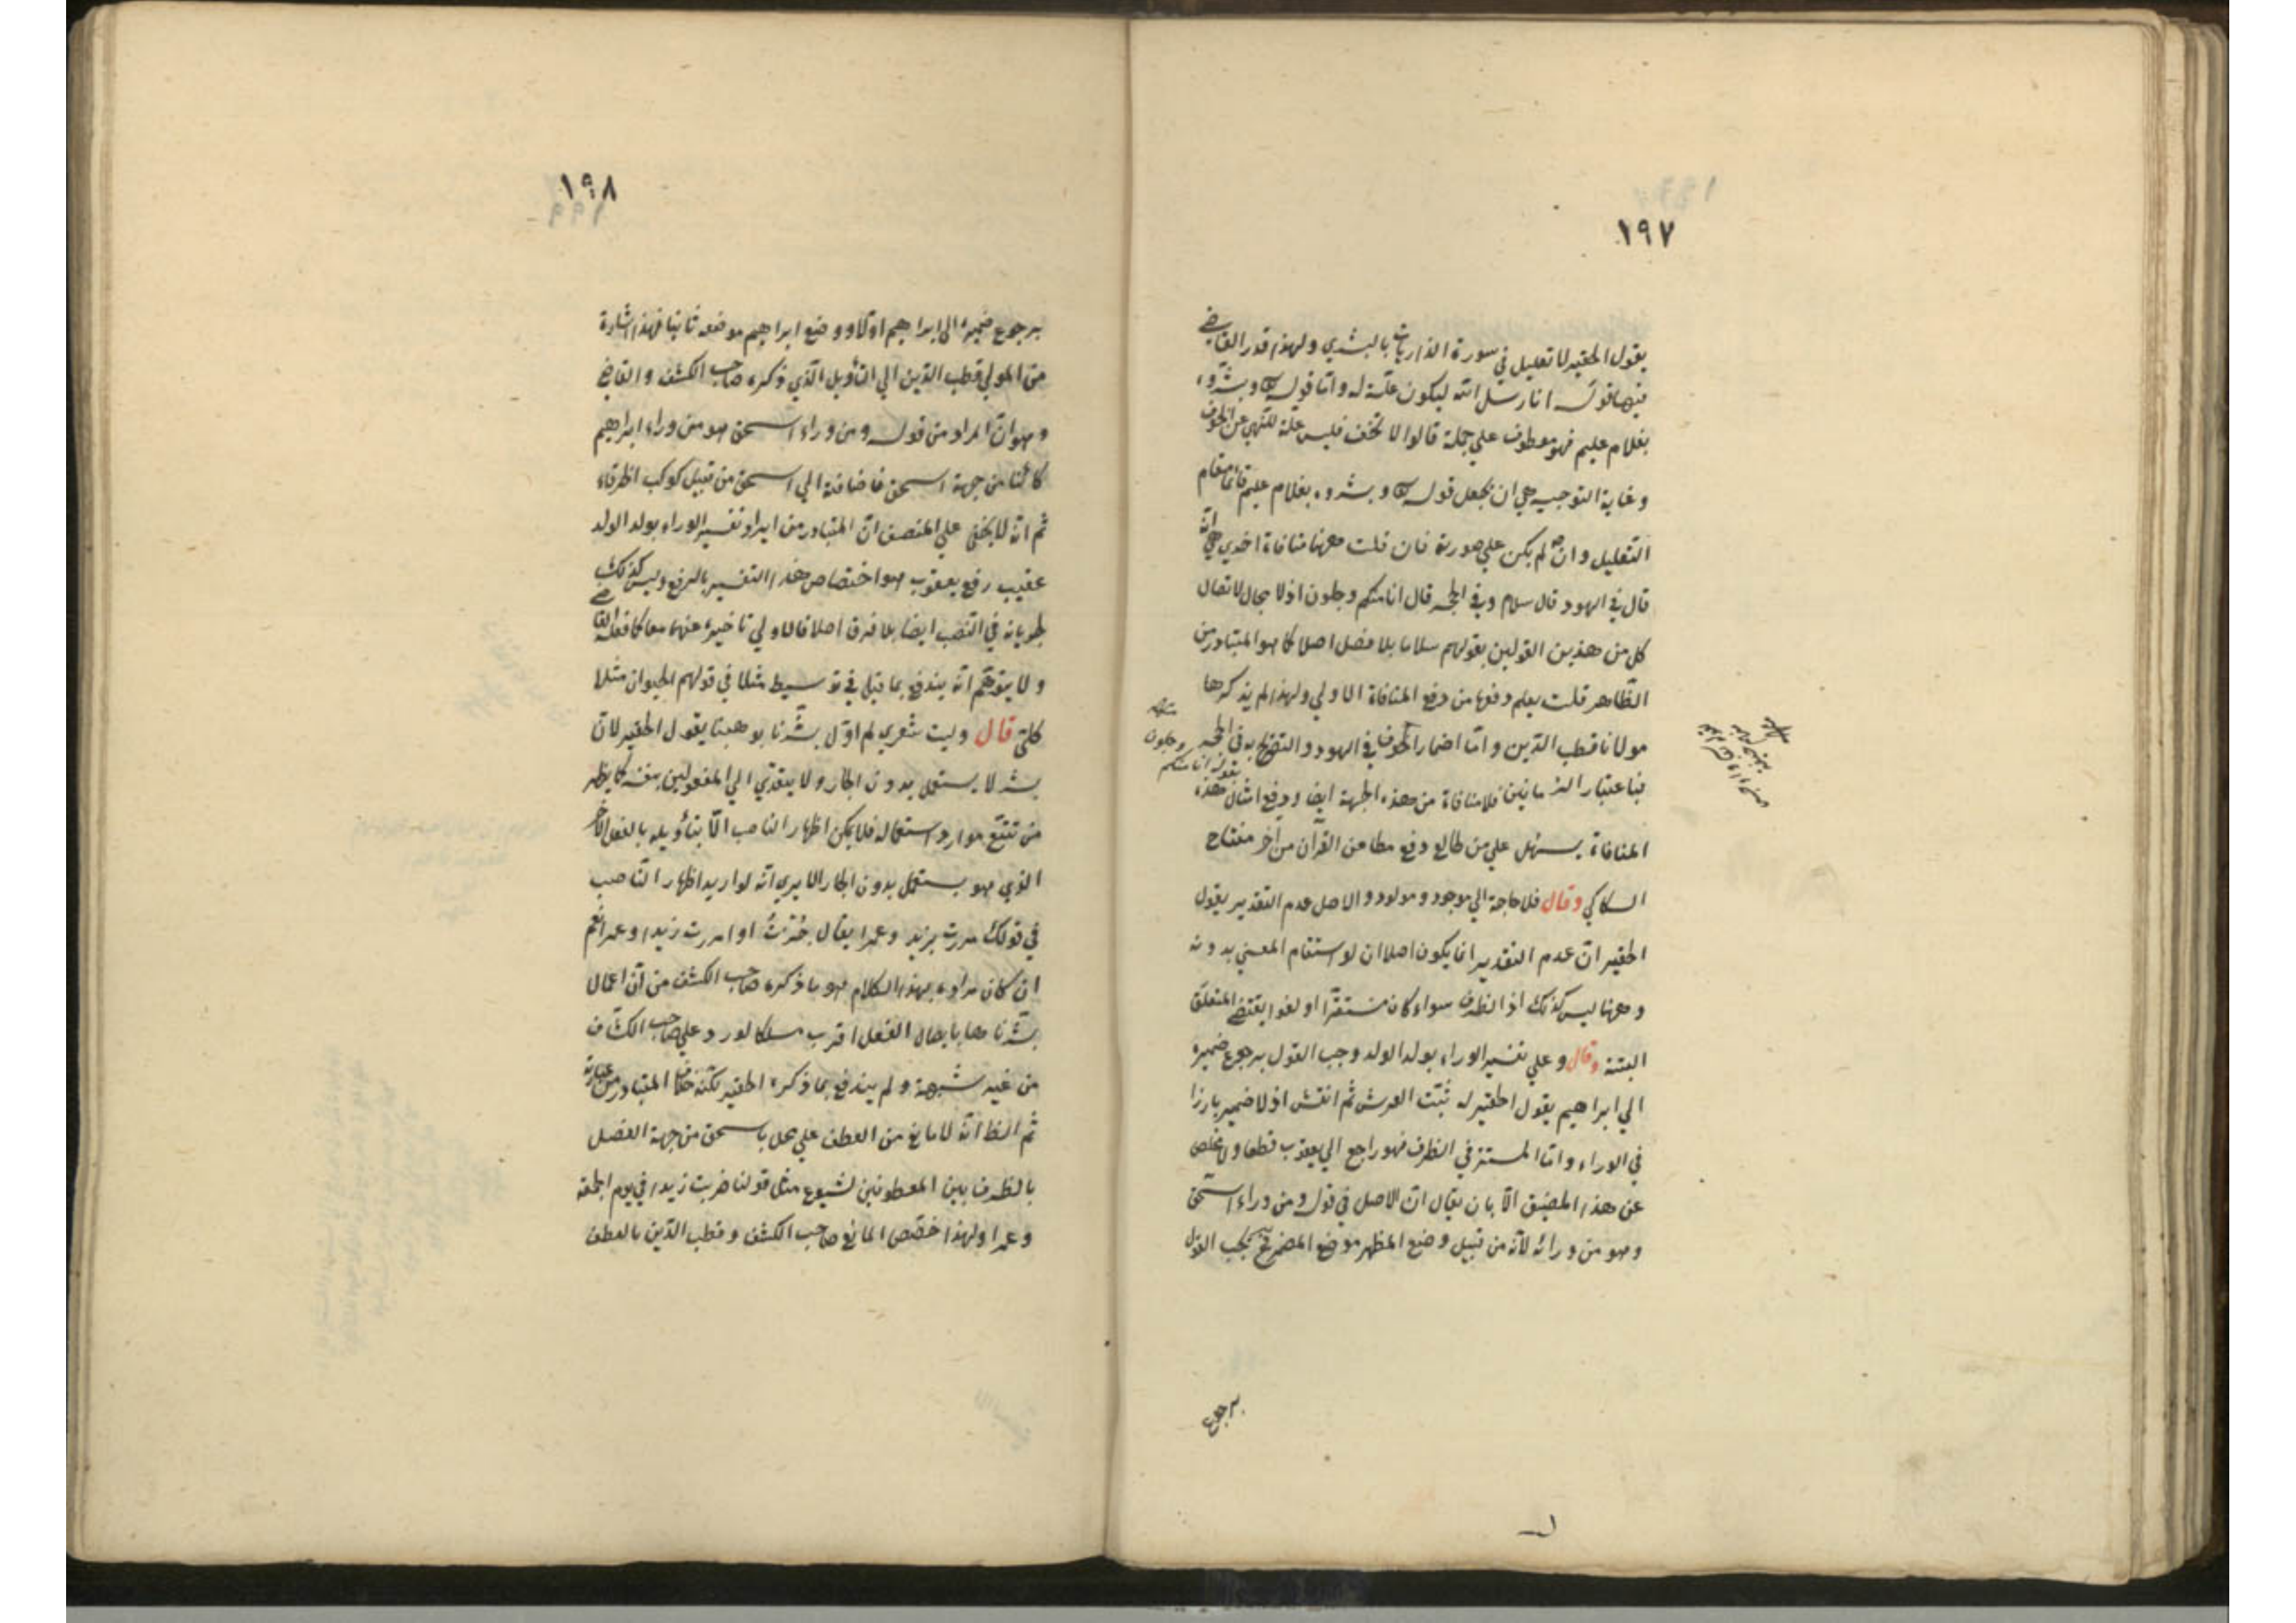 ١٩٧
يقول الحقير لا تعليل في سورة الذاريات بالبشرى ولهذا قدر القاضي
فيها قوله انا رسل الله ليكون علة له واما قوله وبشروه
بغلام عليم فهو معطوف على جملة قالوا لا تخف فليس علة للنهي عن الخوف
وغاية التوجيه هي ان يجعل قوله وبشروه بغلام عليم قائما مقام
التعليل وان لم يكن على صورته فان قلت ههنا منافاة اخرى هي انه
قال في الهود قال سلام وفي الحجر قال انا منكم وجلون اذ لا مجال لاتصال
كل من هذين القولين بقولهم سلاما بلا فصل اصلا كما هو المتبادر من
الظاهر قلت يعلم دفعها من دفع المنافاة الاولى ولهذا لم يذكرها
مولانا قطب الدين واما اضمار الخوف في الهود والتصريح به في الحجر
بقوله انا منكم وجلون
فباعتبار الزمانين فلا منافاة من هذه الجهة ايضا ودفع امثال هذه
المنافاة يسهل على من طالع دفع مطاعن القرآن من آخر مفتاح
السكاكي وقال فلا حاجة الى موجود ومولود والاصل عدم التقدير يقول
الحقير ان عدم التقدير انما يكون اصلا ان لو استقام المعنى بدونه
وههنا ليس كذلك اذ الظرف سواء كان مستقرا او لغوا يقتضي المتعلق
البتة وقال وعلى تفسير الوراء بولد الولد وجب القول برجوع ضميره
الى ابراهيم يقول الحقير له ثبت العرش ثم انقش اذ لا ضمير بارزا
في الوراء واما المستتر في الظرف فهو راجع الى يعقوب قطعا ولا مخلص
عن هذا المضيق الا بان يقال ان الاصل في قوله ومن وراء اسحق
وهو من ورائه لانه من قبيل وضع المظهر موضع المضمر فح يجب القول
برجوع
١٩٨
برجوع ضميره الى ابراهيم اولا ووضع ابراهيم موضعه ثانيا فهذا اشارة
من المولى قطب الدين الى التأويل الذي ذكره صاحب الكشف والقاضي
وهو ان المراد من قوله ومن وراء اسحق هو من وراء ابراهيم
كائنا من جهة اسحق فاضافته الى اسحق من قبيل كوكب الخرقاء
ثم انه لا يخفى على المنصف ان المتبادر من ايراد تفسير الوراء بولد الولد
عقيب رفع يعقوب هو اختصاص هذا التفسير بالرفع وليس كذلك
لجريانه في النصب ايضا بلا فرق اصلا فالاولى تاخيره عنهما معا كما فعله القاضي
ولا يتوهم انه يندفع بما قيل في توسيط مثلا في قولهم الحيوان مثلا
كلي قال وليت شعري لم اول بشرنا بوهبنا يقول الحقير لان
بشر لا يستعمل بدون الجار ولا يتعدى الى المفعولين بنفسه كما يظهر
من تتبع موارد استعماله فلا يمكن اظهار الناصب الا بتأويله بالفعل الآخر
الذي هو يستعمل بدون الجار الا يرى انه لو اريد اظهار الناصب
في قولك مررت بزيد وعمرا يقال جزت او امررت زيدا وعمرا نعم
ان كان مراده بهذا الكلام هو ما ذكره صاحب الكشف من ان اعمال
بشرناها بايصال الفعل اقرب مسلكا لورد على صاحب الكشاف
من غير شبهة ولم يندفع بما ذكره الحقير لكنه خلاف المتبادر من عبارته
ثم الظ انه لا مانع من العطف على محل باسحق من جهة الفصل
بالظرف بين المعطوفين لشيوع مثل قولنا ضربت زيدا في يوم الجمعة
وعمرا ولهذا خصص المانع صاحب الكشف وقطب الدين بالعطف